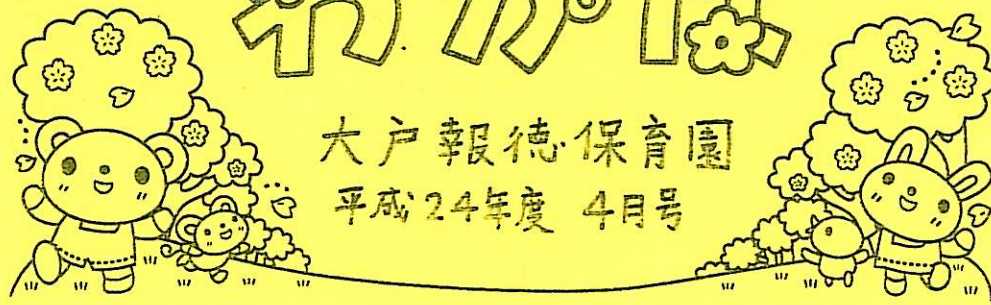 大戸報徳保育園
平成24年度 4月号